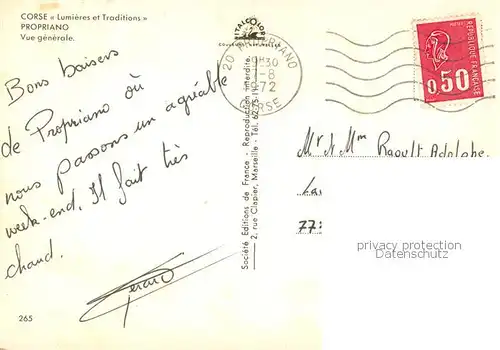 CORSE « Lumières et Traditions »
PROPRIANO
Vue générale.
Bons baisers
de Propriano où
nous passons un agréable
week-end. Il fait très
chaud.
Gérard
265
Société Editions de France - Reproduction interdite.
2, rue Clapier, Marseille - Tél. 62-75-11
ITALCOLOR
20 PROPRIANO
9H30
7-8
1972
CORSE
REPUBLIQUE FRANÇAISE
0,50
Mr & Mm Raoult Adolphe.
La.
77:
privacy protection
Datenschutz